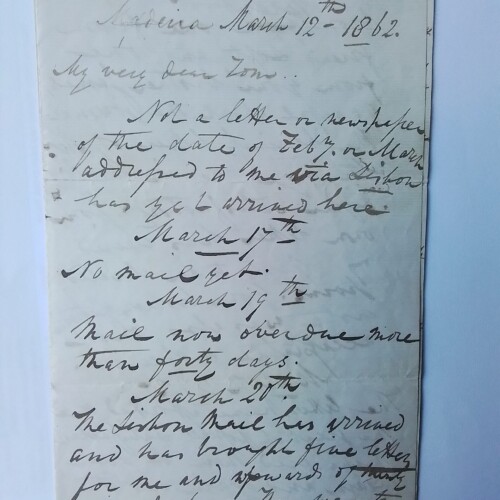 Madeira March 12th 1862.
My very dear Tom..
Not a letter or newspaper
of the date of Feby. or March
addressed to me via Lisbon
has yet arrived here.
March 17th
No mail yet.
March 19th
Mail now overdue more
than forty days.
March 20th.
The Lisbon Mail has arrived
and has brought five letters
for me and upwards of